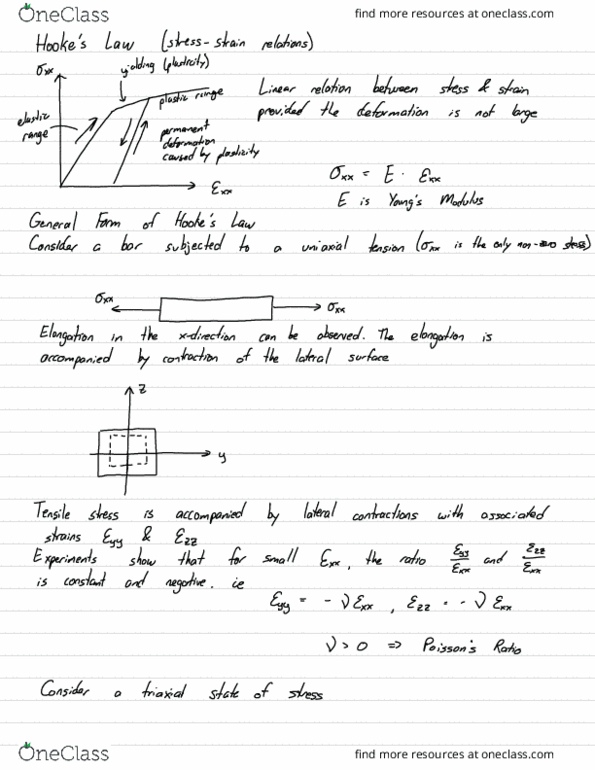 OneClass
find more resources at oneclass.com
Hooke's Law (stress-strain relations)
σxx
yielding (plasticity)
plastic range
elastic
range
permanent
deformation
caused by plasticity
εxx
Linear relation between stress & strain
provided the deformation is not large
σxx = E · εxx
E is Young's Modulus
General Form of Hooke's Law
Consider a bar subjected to a uniaxial tension (σxx is the only non-zero stress)
σxx
σxx
Elongation in the x-direction can be observed. The elongation is
accompanied by contraction of the lateral surface
z
y
Tensile stress is accompanied by lateral contractions with associated
strains εyy & εzz
Experiments show that for small εxx, the ratio εyy/εxx and εzz/εxx
is constant and negative. ie
εyy = - ν εxx , εzz = - ν εxx
ν > 0 => Poisson's Ratio
Consider a triaxial state of stress
OneClass
find more resources at oneclass.com